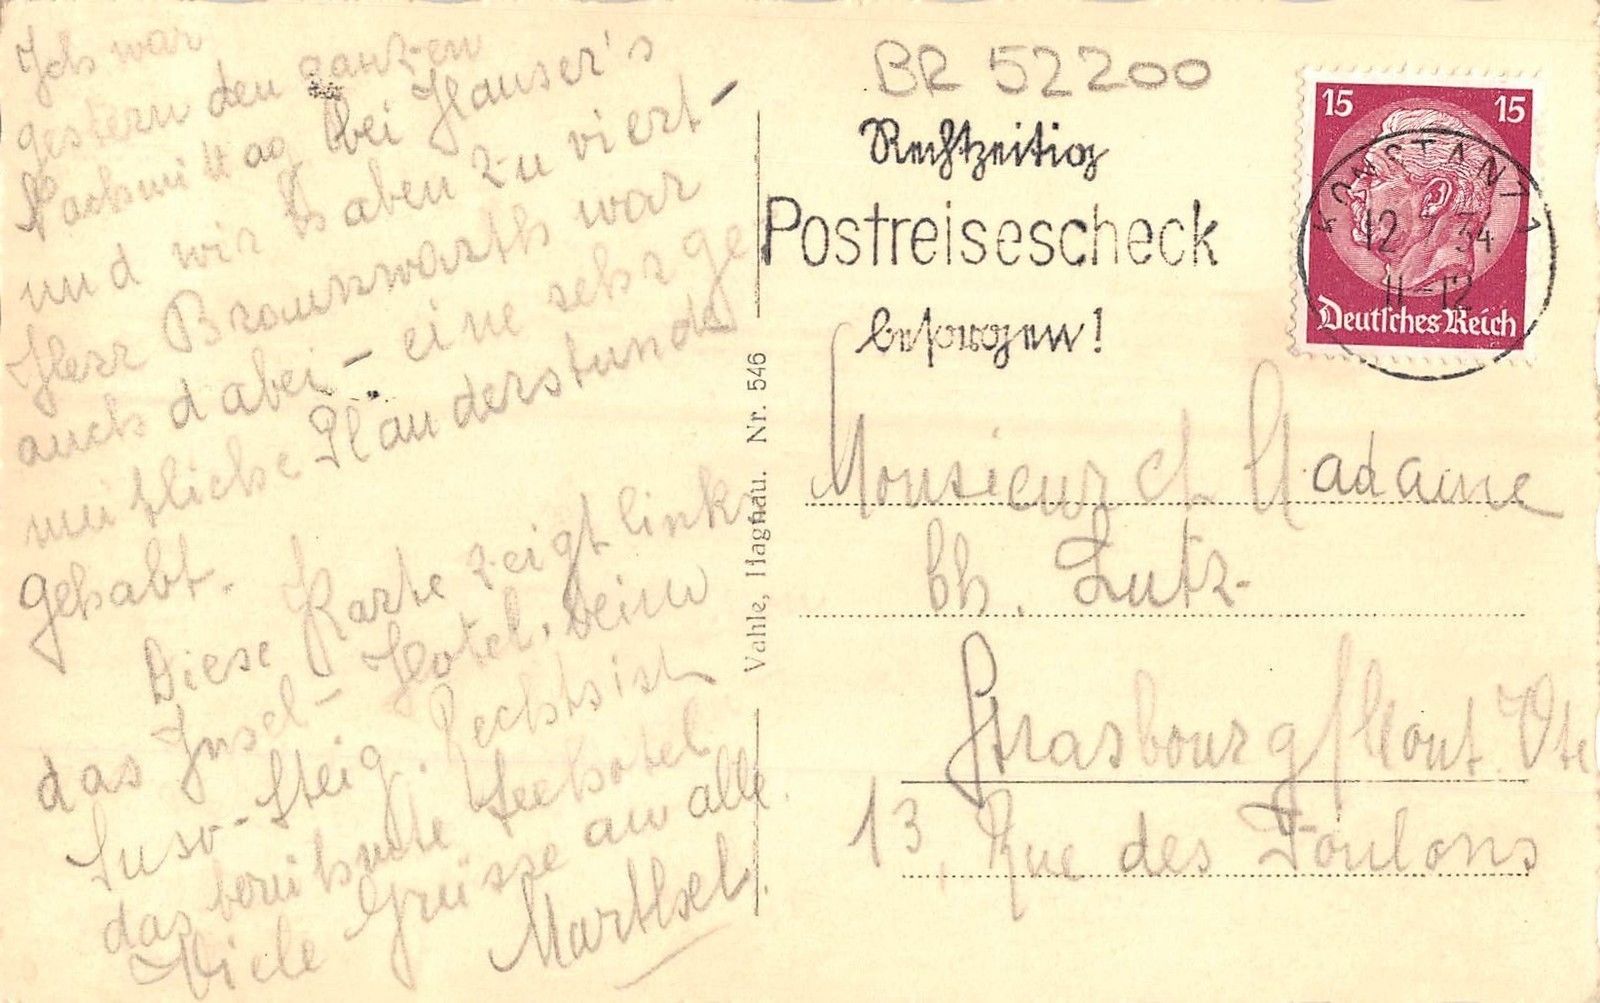 Ich war
gestern den ganzen
Nachmittag bei Hauser's
und wir haben zu viert-
Herr Braunwarth war
auch dabei - eine sehr ge
mütliche Plauderstunde
gehabt.
Diese Karte zeigt links
das Insel-Hotel. Beim
Suso-Steig. Rechts ist
das berühmte Seehotel
Viele Grüsse an alle
Marthel.
Vahle, Hagnau. Nr. 546
BR 52200
Rechtzeitig
Postreisescheck
besorgen!
15 15
KONSTANZ 1
12 34
11-12
Deutsches Reich
Monsieur et Madame
Ch. Lutz
Strasbourg / Mont. Vte
13, Rue des Foulons